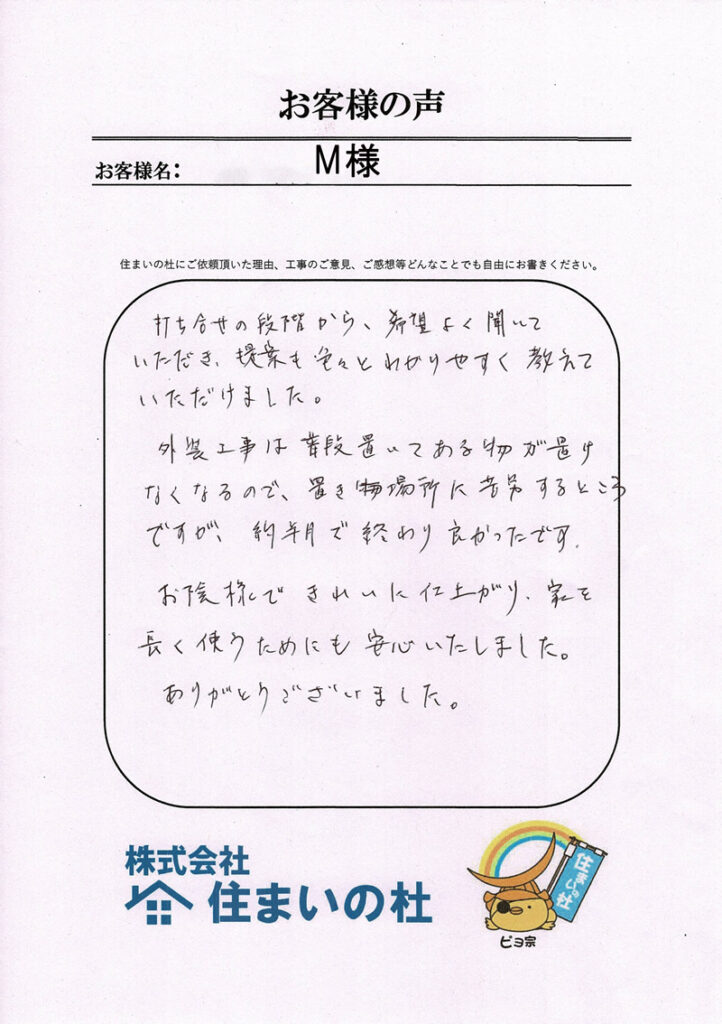 お客様の声
お客様名： M様
住まいの杜にご依頼頂いた理由、工事のご意見、ご感想等どんなことでも自由にお書きください。
打ち合せの段階から、希望よく聞いて
いただき、提案も色々とわかりやすく教えて
いただけました。
外装工事は普段置いてある物が置け
なくなるので、置き物場所に苦労するところ
ですが、約半月で終わり良かったです。
お陰様できれいに仕上がり、家を
長く使うためにも安心いたしました。
ありがとうございました。
株式会社
住まいの杜
住まいの杜
ピヨ宗